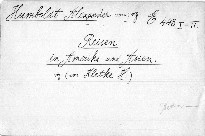 Humboldt Alexander von, E 448 I-II.
Reisen
in Amerika und Asien.
v (von Kletke H)